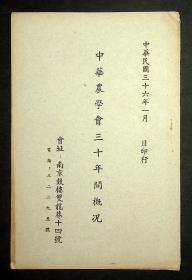 中華民國三十六年一月　目印行
中華農學會三十年間概況
會址：南京鼓樓雙龍巷十四號
電話：三二二九五號